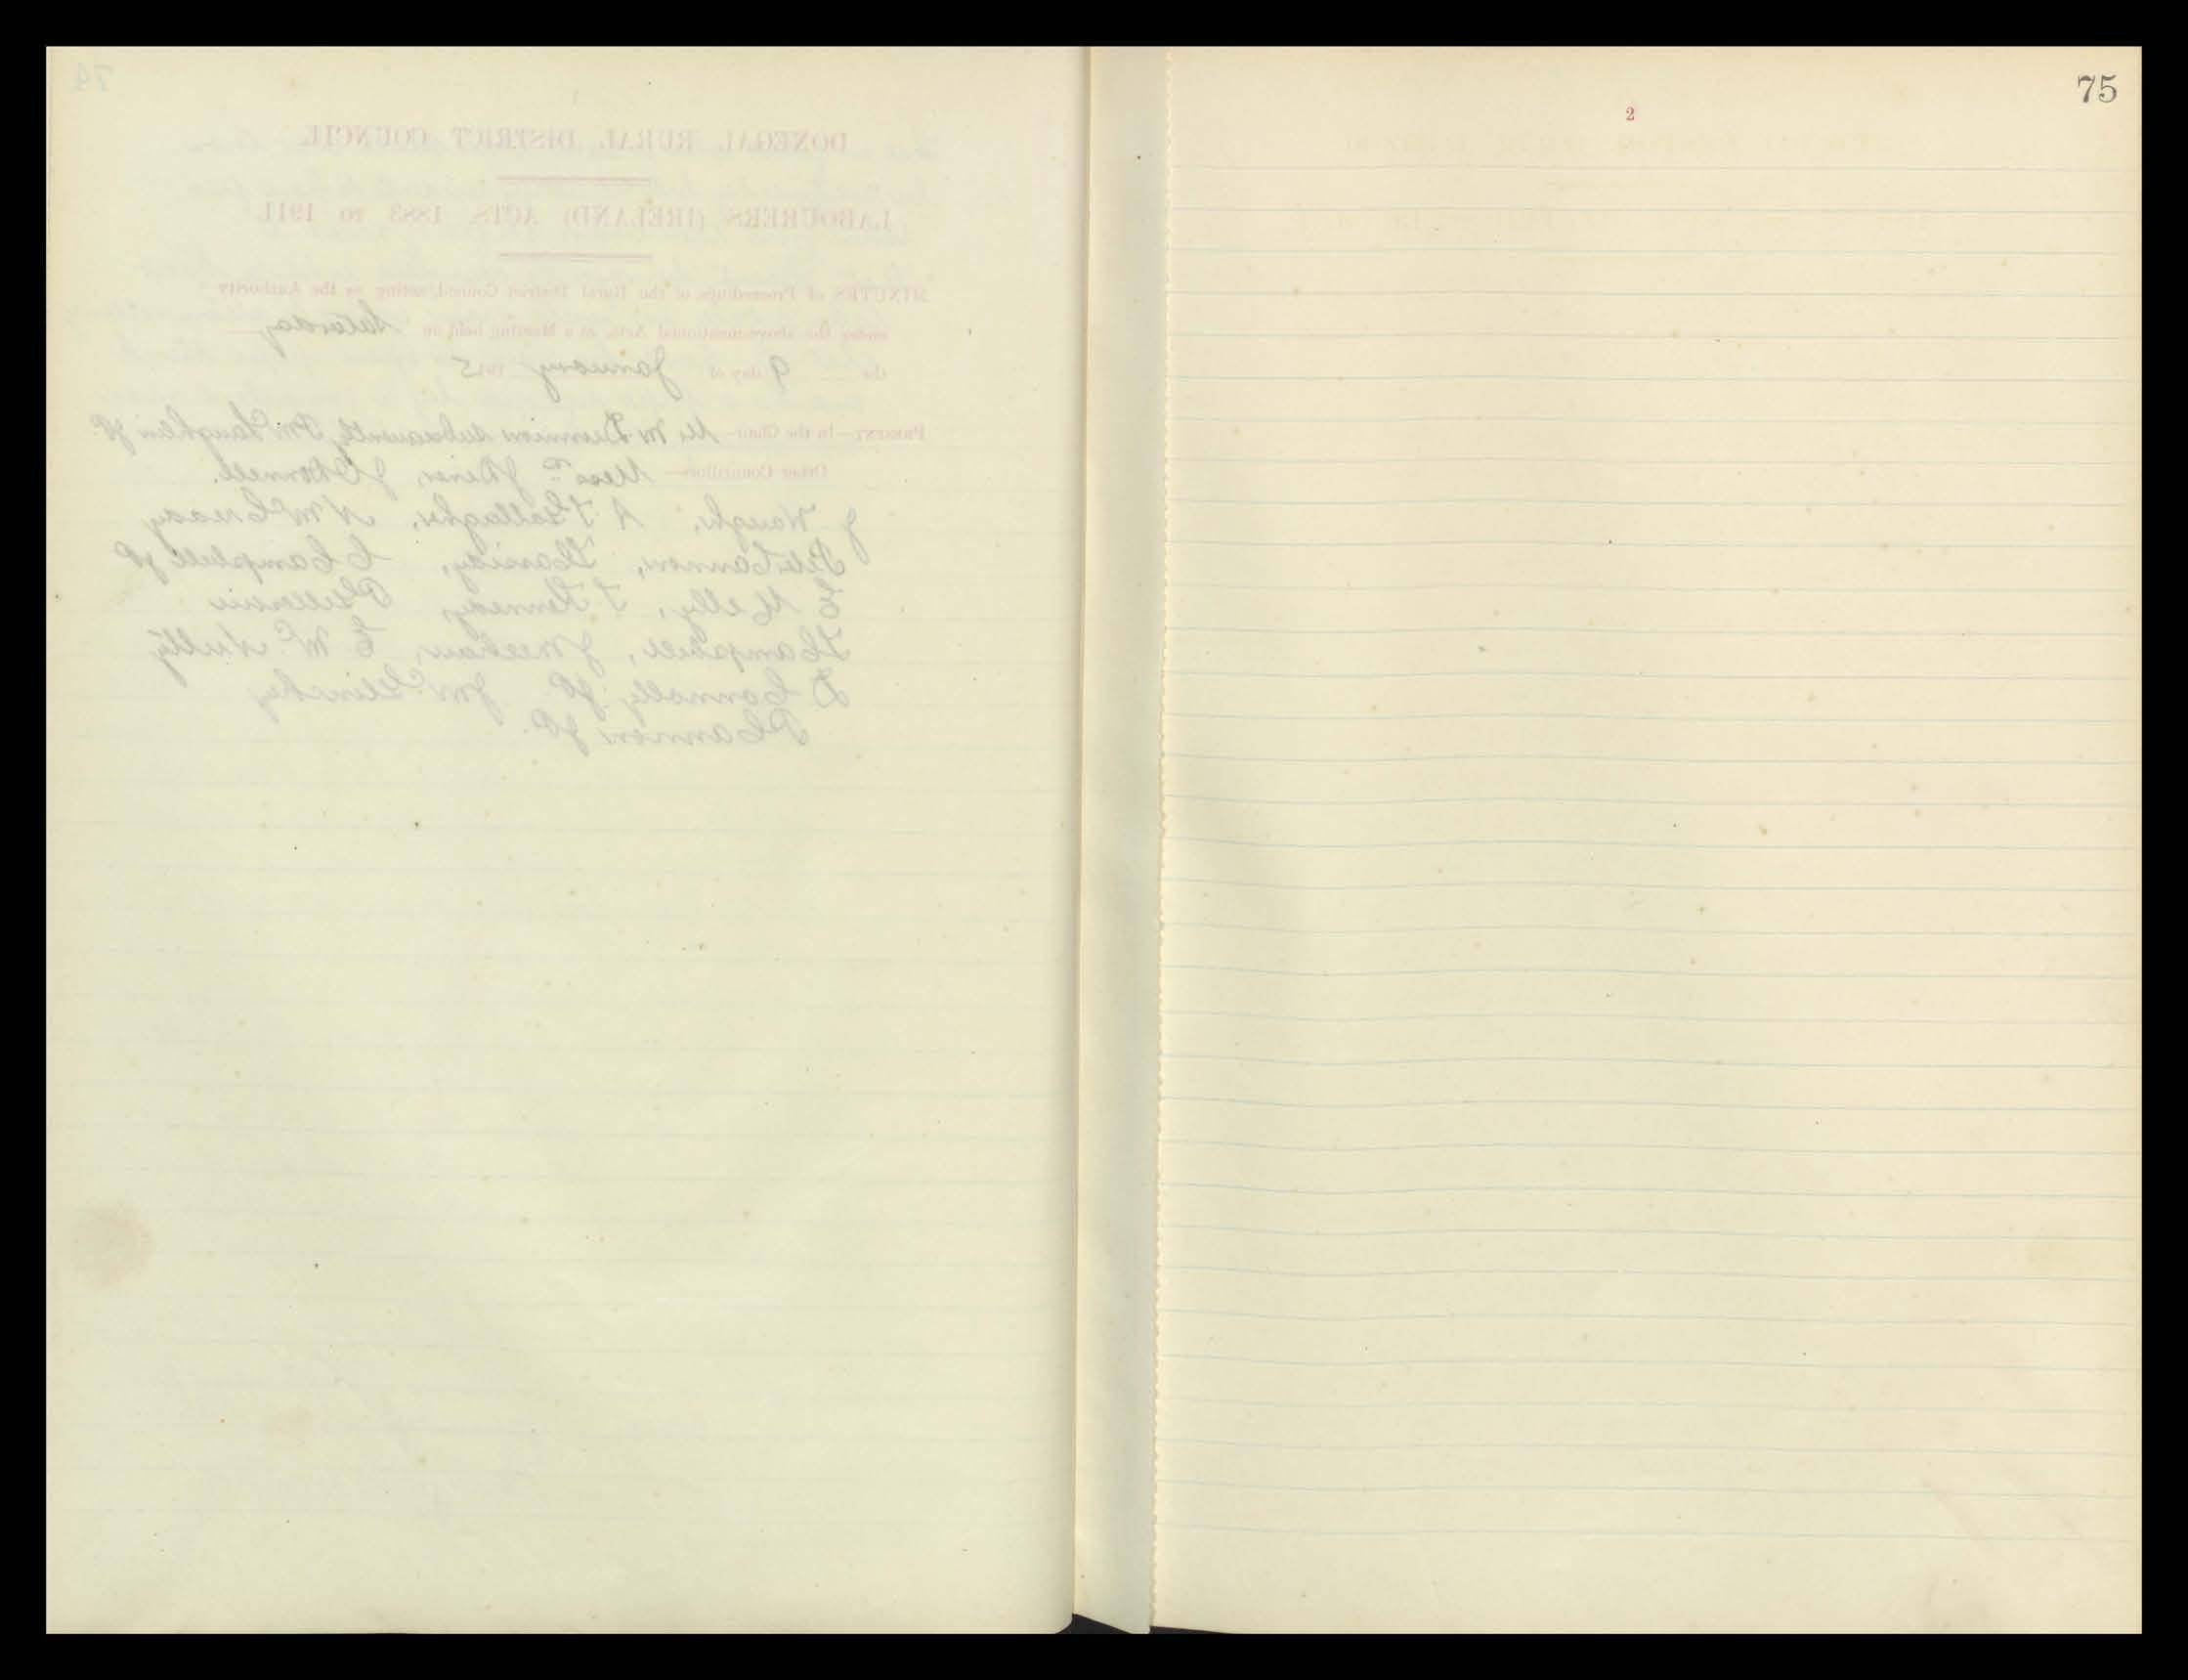 74
DONEGAL RURAL DISTRICT COUNCIL.
LABOURERS (IRELAND) ACTS, 1883 TO 1911.
MINUTES of Proceedings of the Rural District Council, acting as the Authority
under the above-mentioned Acts, at a Meeting held on Saturday
the 9 day of January 1915
PRESENT—In the Chair— Mr M Dunnion subsequently P McLaughlin JP.
Other Councillors— Messrs J O'Donnell.
J Waugh, A T Gallagher, N McCready
Cannon, T Cassidy, C Campbell JP
E Melly, T Kennedy,
T Campbell, J Meehan, E McNulty
D Connolly JP. J McGlinchey
P Cannon JP.
75
2